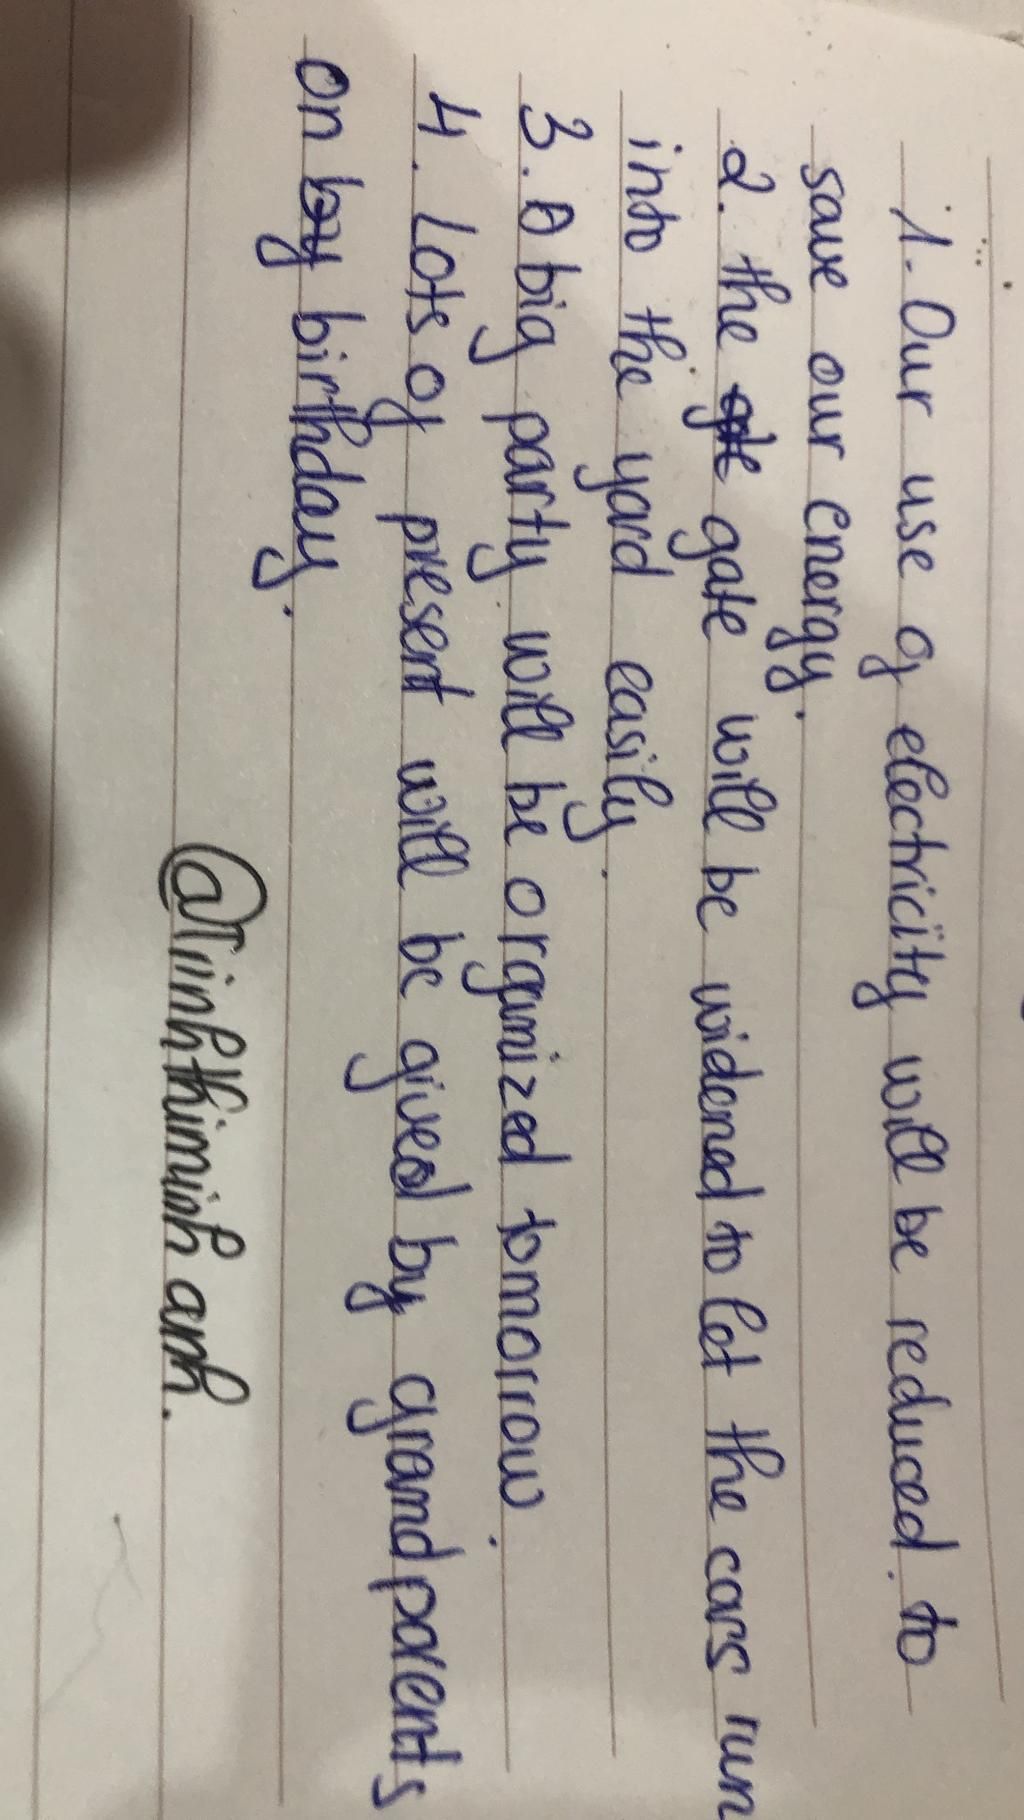 1. Our use of electricity will be reduced. to
save our energy.
2. the gate will be widened to let the cars run
into the yard easily.
3. A big party will be organized tomorrow.
4. Lots of present will be gived by grandparents
on birthday.
@Trinhthiminh anh.